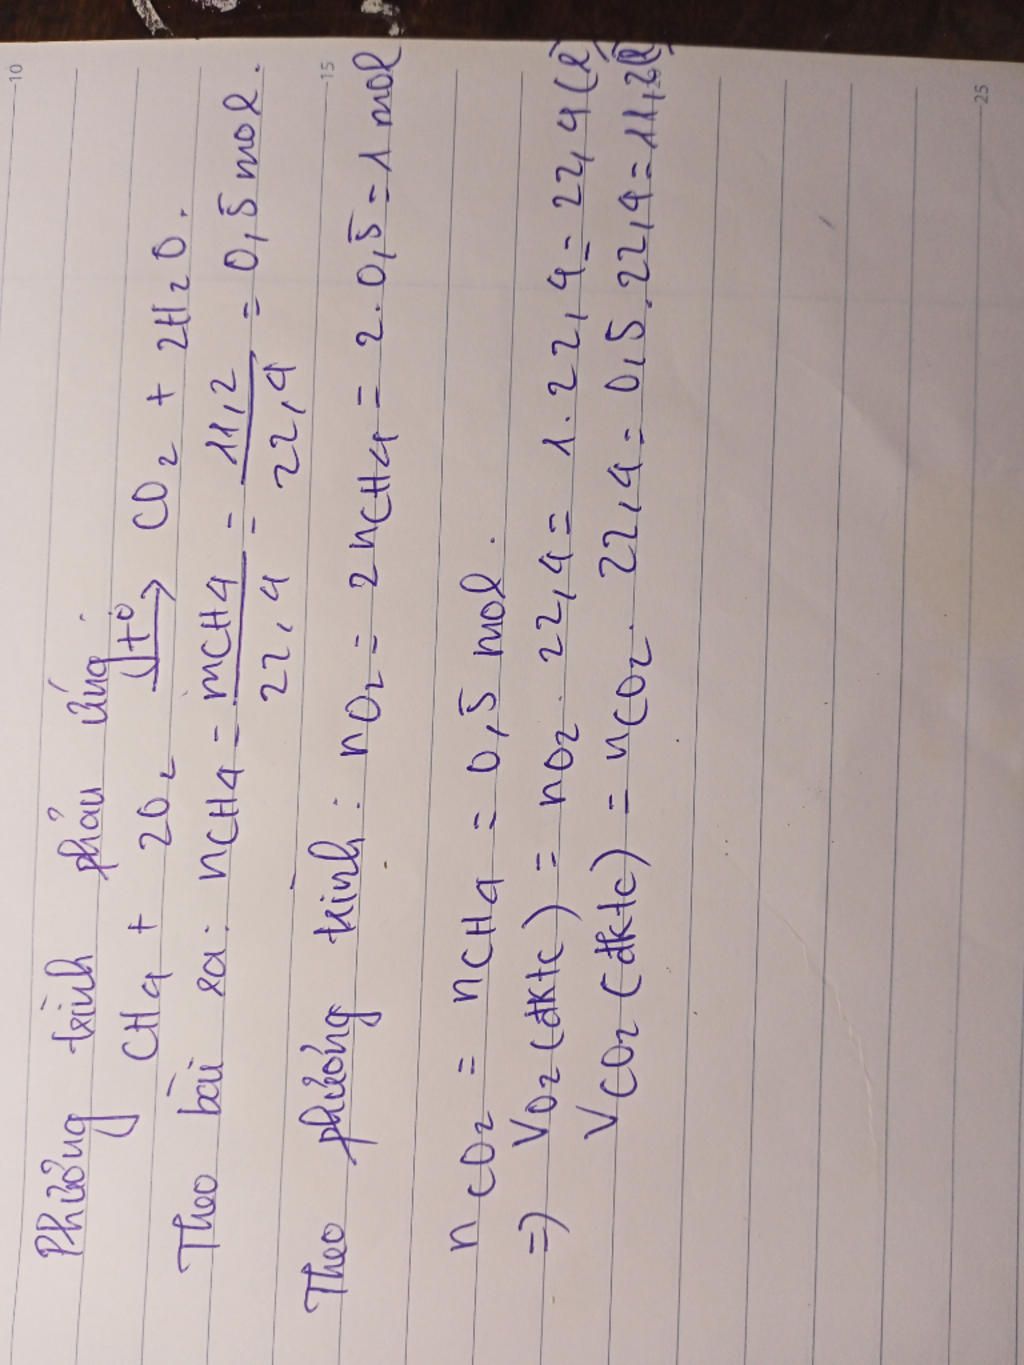 Phương trình phản ứng.
CH4 + 2O2 t° → CO2 + 2H2O.
Theo bài ra: nCH4 = mCH4 / 22,4 = 11,2 / 22,4 = 0,5 mol.
Theo phương trình: nO2 = 2nCH4 = 2.0,5 = 1 mol
nCO2 = nCH4 = 0,5 mol.
=> VO2 (đktc) = nO2 . 22,4 = 1.22,4 = 22,4 (l)
VCO2 (đktc) = nCO2 . 22,4 = 0,5.22,4 = 11,2(l)
10
15
25